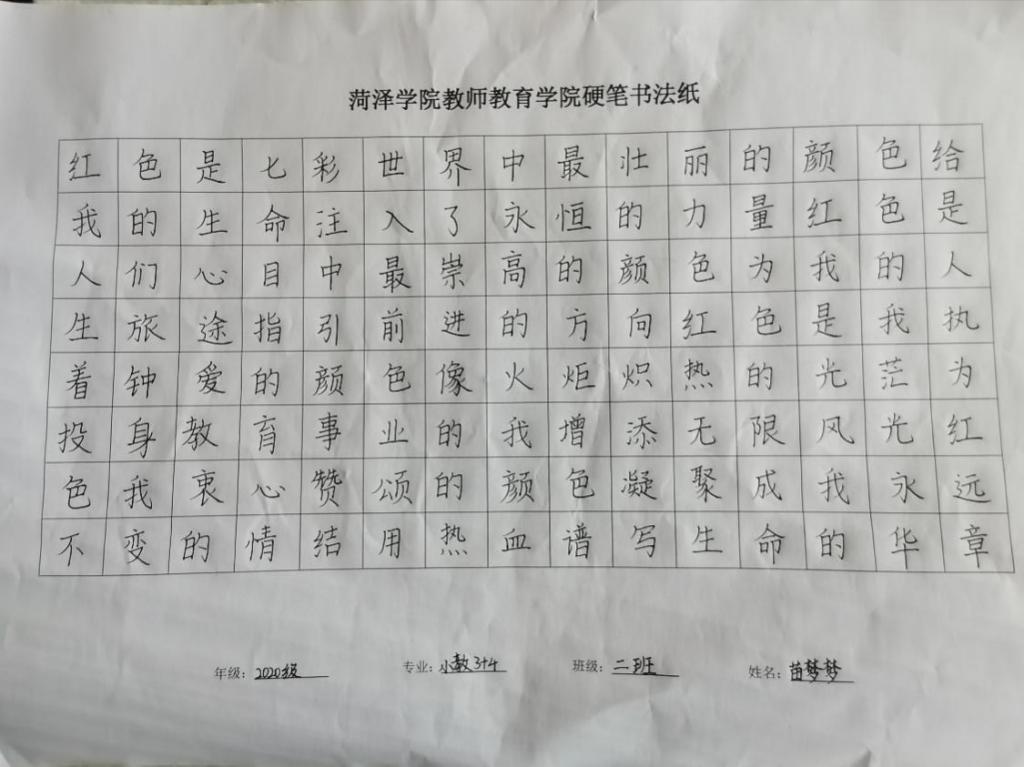 菏泽学院教师教育学院硬笔书法纸
红色是七彩世界中最壮丽的颜色给
我的生命注入了永恒的力量红色是
人们心目中最崇高的颜色为我的人
生旅途指引前进的方向红色是我执
着钟爱的颜色像火炬炽热的光茫为
投身教育事业的我增添无限风光红
色我衷心赞颂的颜色凝聚成我永远
不变的情结用热血谱写生命的华章
年级：2020级 专业：小教3+4 班级：二班 姓名：苗梦梦